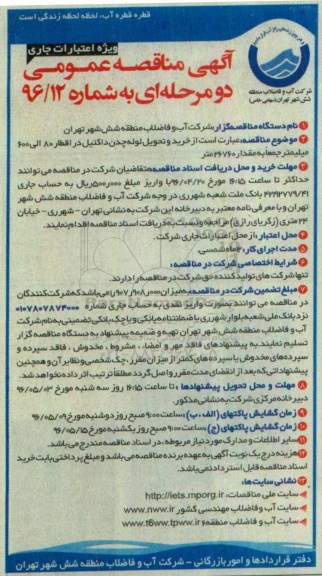 قطره قطره آب، لحظه لحظه زندگی است
ویژه اعتبارات جاری
آگهی مناقصه عمومی
دو مرحله‌ای به شماره ۹۶/۱۲
شرکت آب و فاضلاب منطقه
شش شهر تهران (سهامی خاص)
۱ نام دستگاه مناقصه‌گزار: شرکت آب و فاضلاب منطقه شش شهر تهران
۲ موضوع مناقصه: عبارت است از خرید و تحویل لوله چدن داکتیل در اقطار ۸۰ الی ۶۰۰
میلیمتر جمعاً به مقدار ۲۶۷۶۰ متر
۳ مهلت خرید و محل دریافت اسناد مناقصه: متقاضیان شرکت در مناقصه می توانند
حداکثر تا ساعت ۱۶:۱۵ مورخ ۹۶/۰۴/۲۰ با واریز مبلغ ۵۰۰,۰۰۰ ریال به حساب جاری
بانک ملت شعبه شهرری در وجه شرکت آب و فاضلاب منطقه شش شهر
تهران و با معرفی نامه معتبر به دبیرخانه این شرکت به نشانی تهران - شهرری - خیابان
۲۴ متری (زکریای رازی) مراجعه و نسبت به دریافت اسناد مناقصه اقدام نمایند.
۴ محل اعتبار: از محل اعتبارات جاری شرکت.
۵ مدت اجرای کار: ماه شمسی.
۶ شرایط اختصاصی شرکت در مناقصه:
تنها شرکت های تولید کننده حق شرکت در مناقصه را دارند.
۷ مبلغ تضمین شرکت در مناقصه: به میزان ریال می باشد که شرکت کنندگان
در مناقصه می توانند بصورت واریز نقدی به حساب جاری شماره ۰۱۰۷۸۰۷۸۷۴۰۰۰
نزد بانک ملی شعبه بلوار شهرری یا ضمانتنامه بانکی و یا چک بانکی تضمینی به نام شرکت
آب و فاضلاب منطقه شش شهر تهران تهیه و ضمیمه پیشنهاد به دستگاه مناقصه گزار
تسلیم نمایند. به پیشنهادهای فاقد مهر و امضاء، مشروط، مخدوش، فاقد سپرده و
سپرده های مخدوش یا سپرده های کمتر از میزان مقرر، چک شخصی و نظایر آن و همچنین
پیشنهاداتی که بعد از انقضای مدت مقرر واصل گردد مطلقاً ترتیب اثر داده نخواهد شد.
۸ مهلت و محل تحویل پیشنهادها: تا ساعت ۱۶:۱۵ روز سه شنبه مورخ ۹۶/۰۵/۰۳
دبیرخانه مرکزی شرکت به نشانی مذکور.
۹ زمان گشایش پاکتهای (الف، ب): ساعت ۹:۰۰ صبح روز دوشنبه مورخ ۹۶/۰۵/۰۹
۱۰ زمان گشایش پاکتهای (ج): ساعت ۹:۰۰ صبح روز یکشنبه مورخ ۹۶/۰۵/۱۵
۱۱ سایر اطلاعات و مدارک مورد نیاز مربوطه، در اسناد مناقصه مندرج می باشد.
۱۲ هزینه درج یک نوبت آگهی به عهده برنده مناقصه می باشد و مبلغ پرداختی بابت خرید
اسناد مناقصه قابل استرداد نمی باشد.
۱۳ نشانی سایت ها:
سایت ملی مناقصات: http://iets.mporg.ir
سایت آب و فاضلاب مهندسی کشور www.nww.ir
سایت آب و فاضلاب منطقه ۶ www.t6ww.tpww.ir
دفتر قراردادها و امور بازرگانی - شرکت آب و فاضلاب منطقه شش شهر تهران